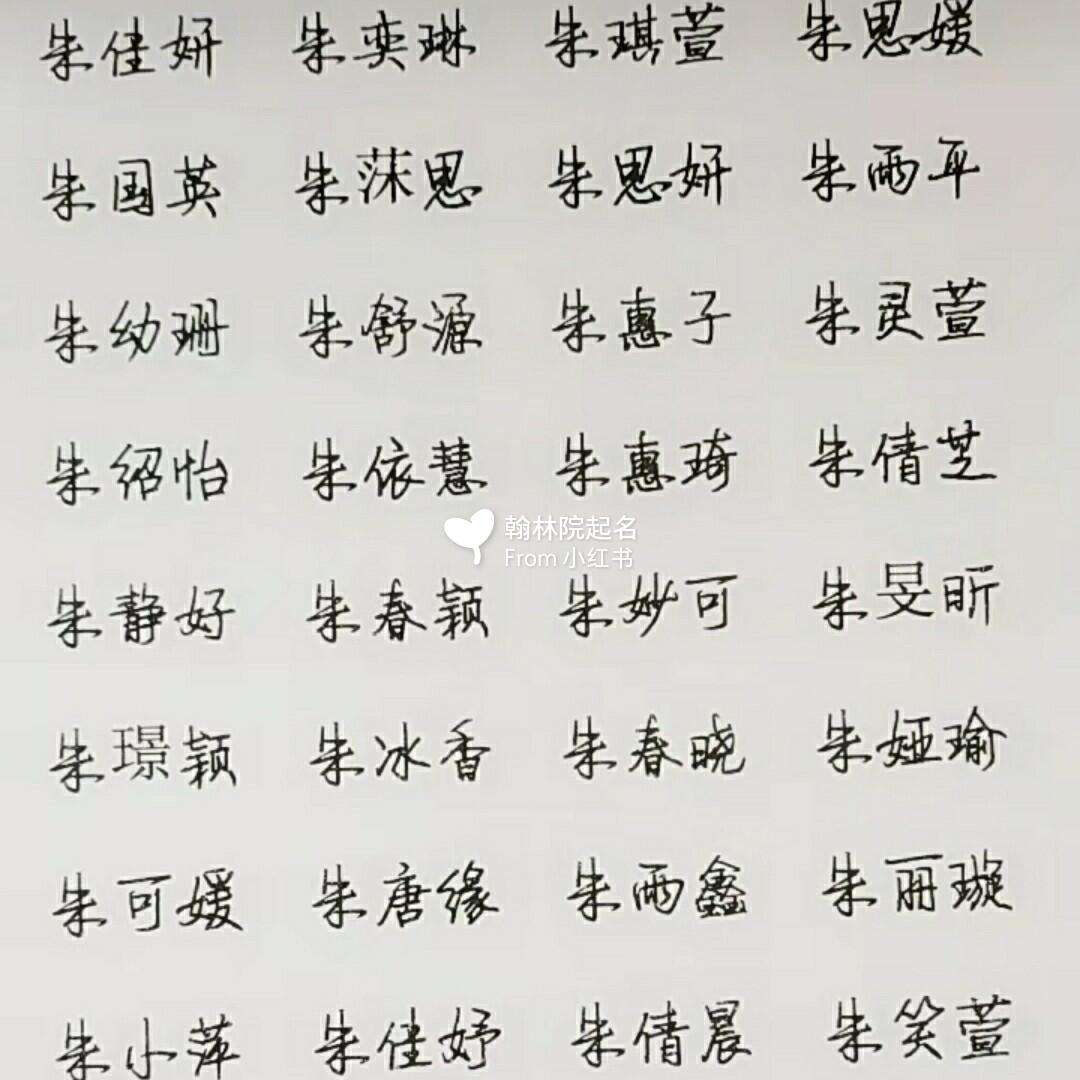 朱佳妍 朱奕琳 朱琪萱 朱思媛
朱国英 朱莯思 朱思妍 朱雨平
朱幼珊 朱舒源 朱惠子 朱灵萱
朱绍怡 朱依慧 朱惠琦 朱倩芝
翰林院起名
From 小红书
朱静好 朱春颖 朱妙可 朱旻昕
朱璟颖 朱冰香 朱春晓 朱娅瑜
朱可媛 朱唐缘 朱雨鑫 朱丽璇
朱小萍 朱佳妤 朱倩晨 朱笑萱